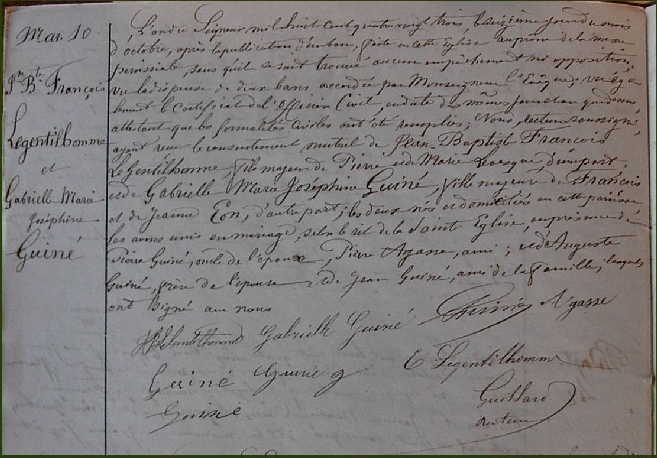 Mar. 10
Jn Bte François
Legentilhomme
et
Gabrielle Marie
Joséphine
Guiné
L'an du Seigneur mil huit cent quatre vingt trois, le seizième jour du mois
d'octobre, après la publication d'un ban, faite en cette Eglise au prône de la messe
paroissiale, sans qu'il se soit trouvé aucun empêchement ni opposition,
vu la dispense de deux bans accordée par Monseigneur l'Evêque, vu également
le certificat de l'Officier Civil, en date du même jour et an que dessus,
attestant que les formalités civiles ont été remplies; Nous, recteur soussigné,
ayant reçu le consentement mutuel de Jean Baptiste François
Legentilhomme, fils majeur de Pierre et de Marie Levesque, d'une part,
et de Gabrielle Marie Joséphine Guiné, fille majeure de François
et de Jeanne Eon, d'autre part; les deux nés et domiciliés en cette paroisse
les avons unis en mariage, selon le rit de la Sainte Eglise, en présence de
Pierre Guiné, oncle de l'épouse, Pierre Agasse, ami; et d'Auguste
Guiné, frère de l'épouse et de Jean Guiné, ami de la famille, lesquels
ont signé avec nous
Legentilhomme Gabrielle Guiné Guiné Agasse
Guiné E Legentilhomme
Guiné
recteur